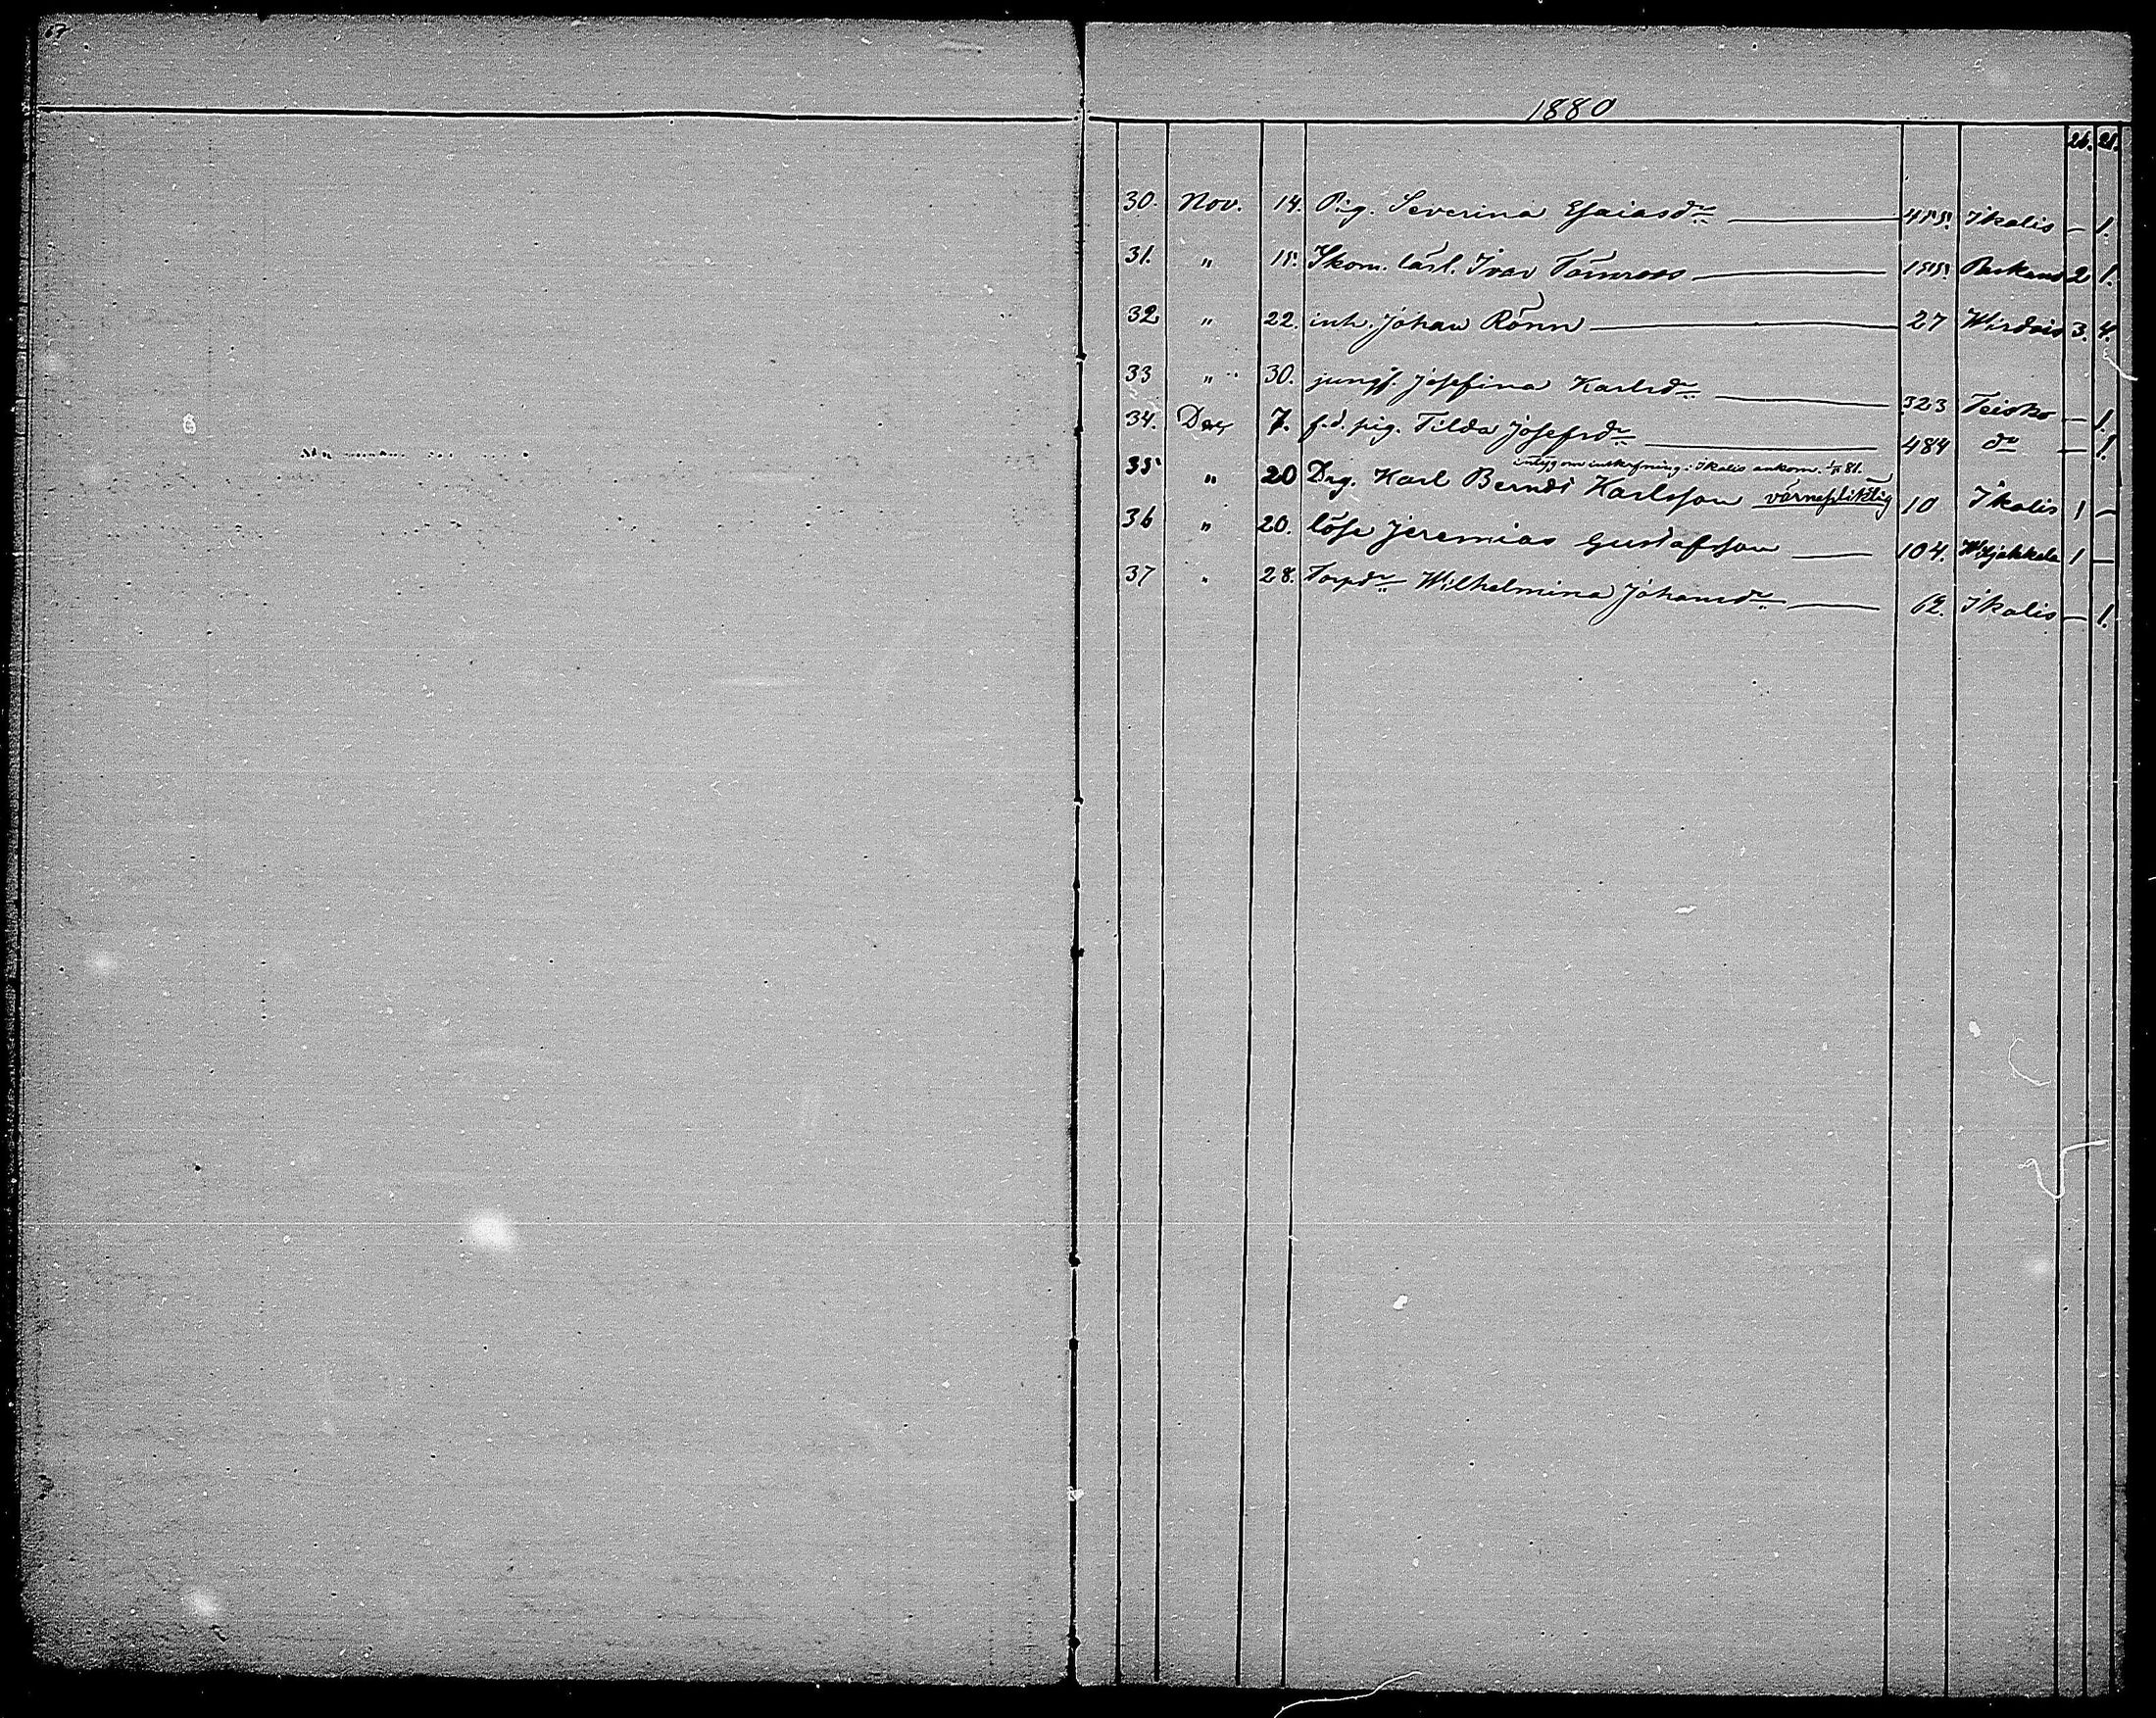 67
1880
26. 21.
30. Nov. 14. Pig. Severina Esaiasdr 455. Ikalis — 1.
31. " 15. Skom. lärl. Ivar Törnroos 155. Parkano 2 1.
32 " 22. inh. Johan Rönn 27 Wirdois 3. 4.
33 " 30. jungf. Josefina Karlsdr 323 Teisko — 1.
34. Decr 7. f.d. pig. Tilda Josefsdr 484 do — 1.
intyg om inskrifning i Ikalis ankom. 81.
35 " 20 Drg. Karl Berndt Karlsson värnepliktig 10 Ikalis 1 —
36 " 20. löse Jeremias Gustafsson 104. Wiljakkala 1 —
37 " 28. Torpdr Wilhelmina Johansdr 62. Ikalis — 1.